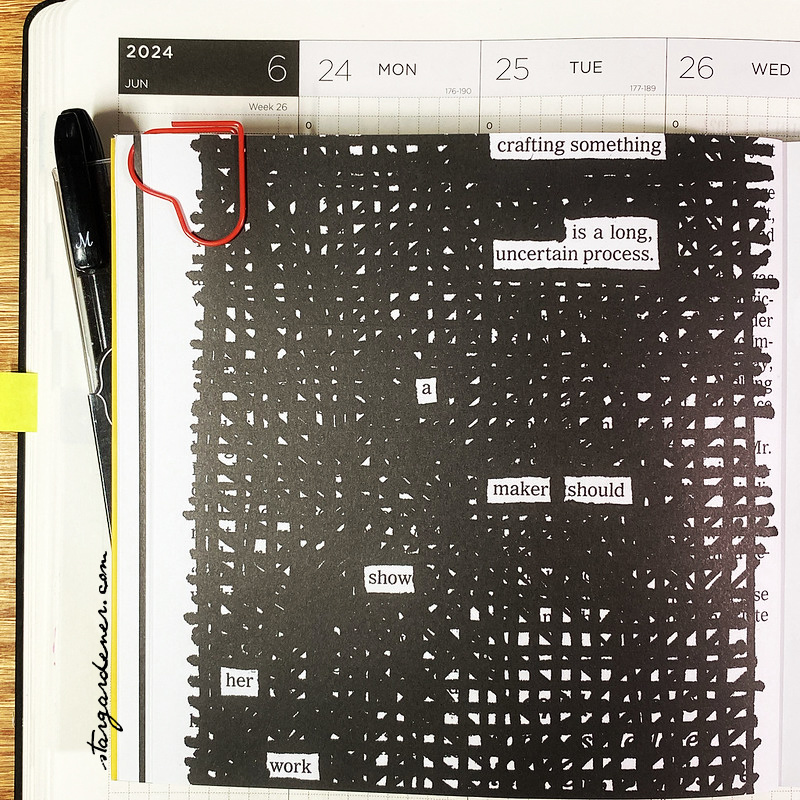 2024
JUN
6
24 MON
25 TUE
26 WED
176-190
177-189
Week 26
0
0
0
M
crafting something
is a long,
uncertain process.
a
maker should
show
her
work
Mr.
stargardener.com